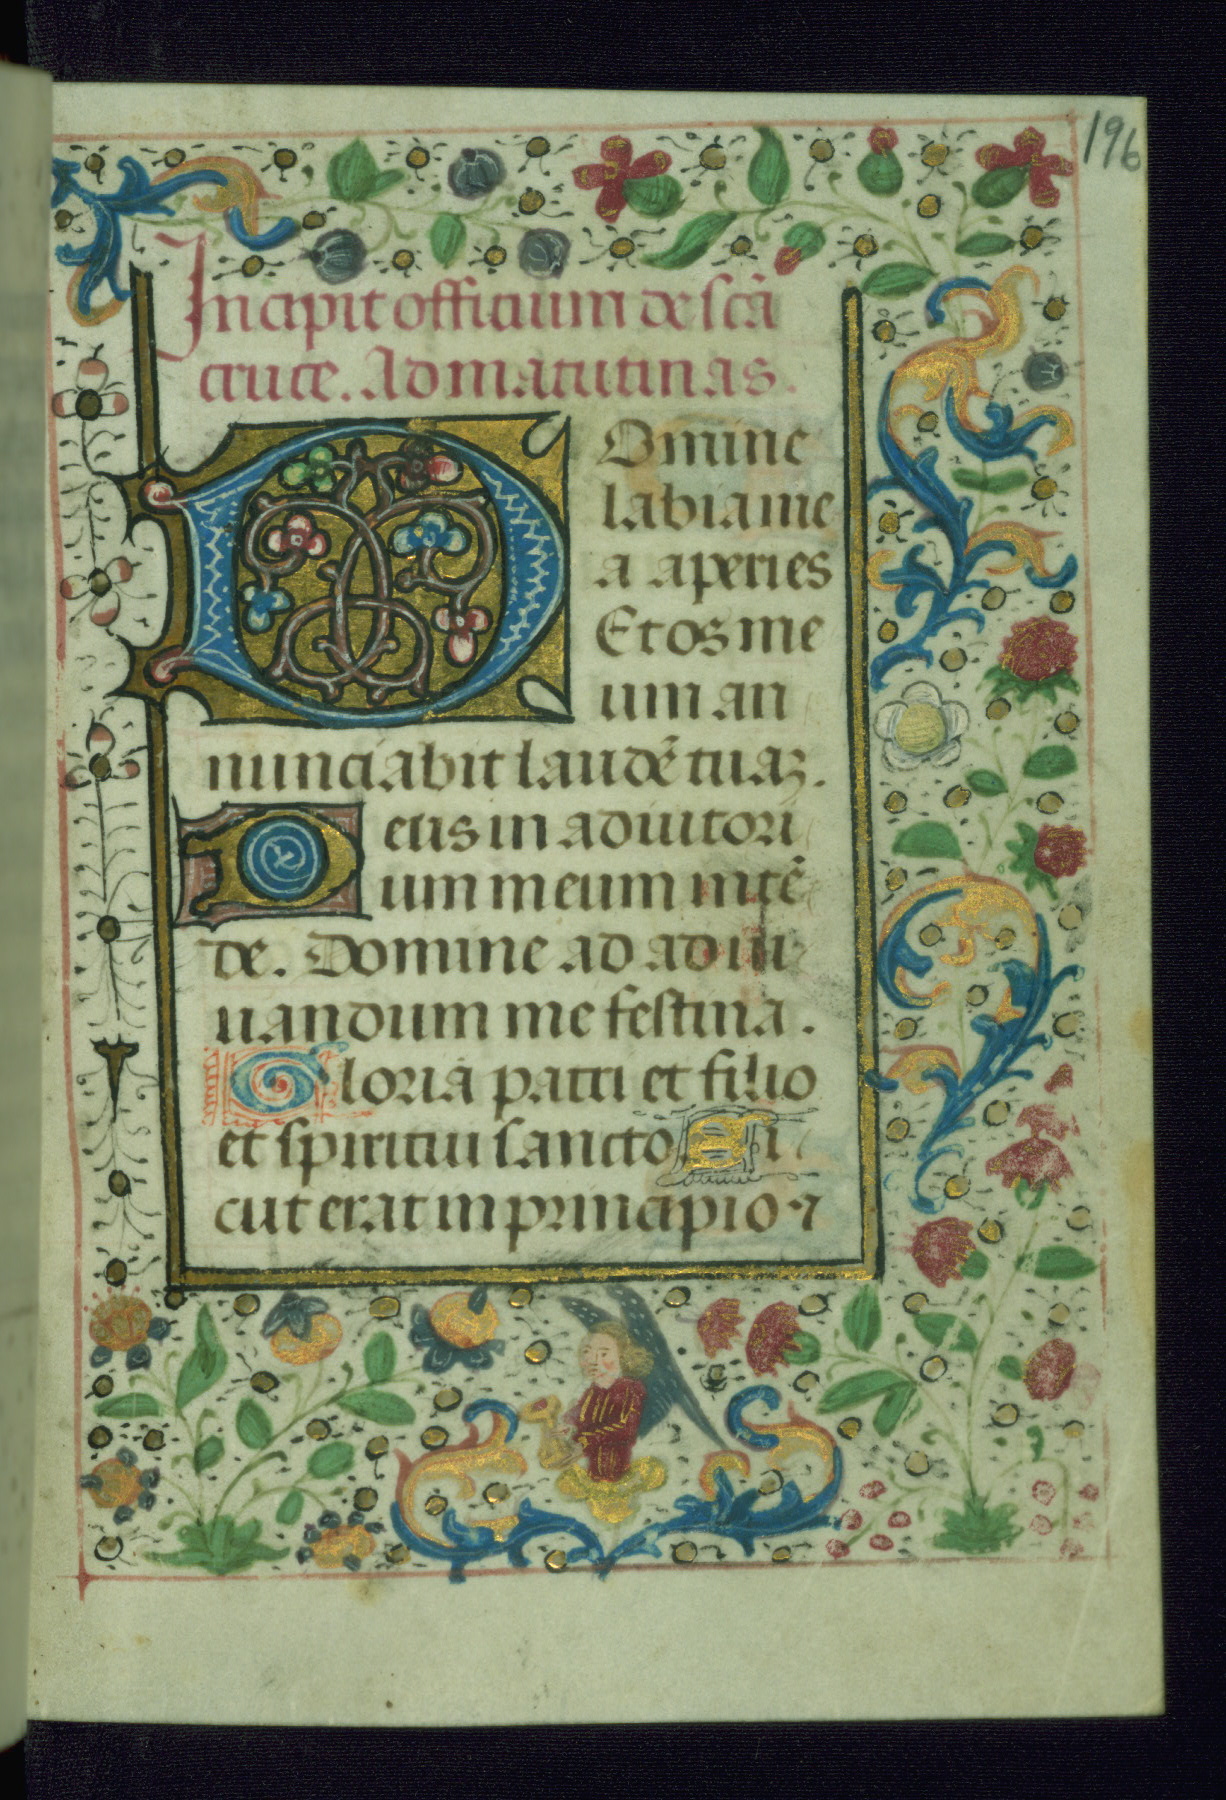 196
Incipit officium de scā
cruce. Ad matutinas.
Domine
labia me
a aperies
Et os me
um an
nunciabit laudē tuaꝫ.
Deus in adiutori
um meum intē
de. Domine ad adiu
uandum me festina.
Gloria patri et filio
et spiritui sancto Si
cut erat in principio ⁊